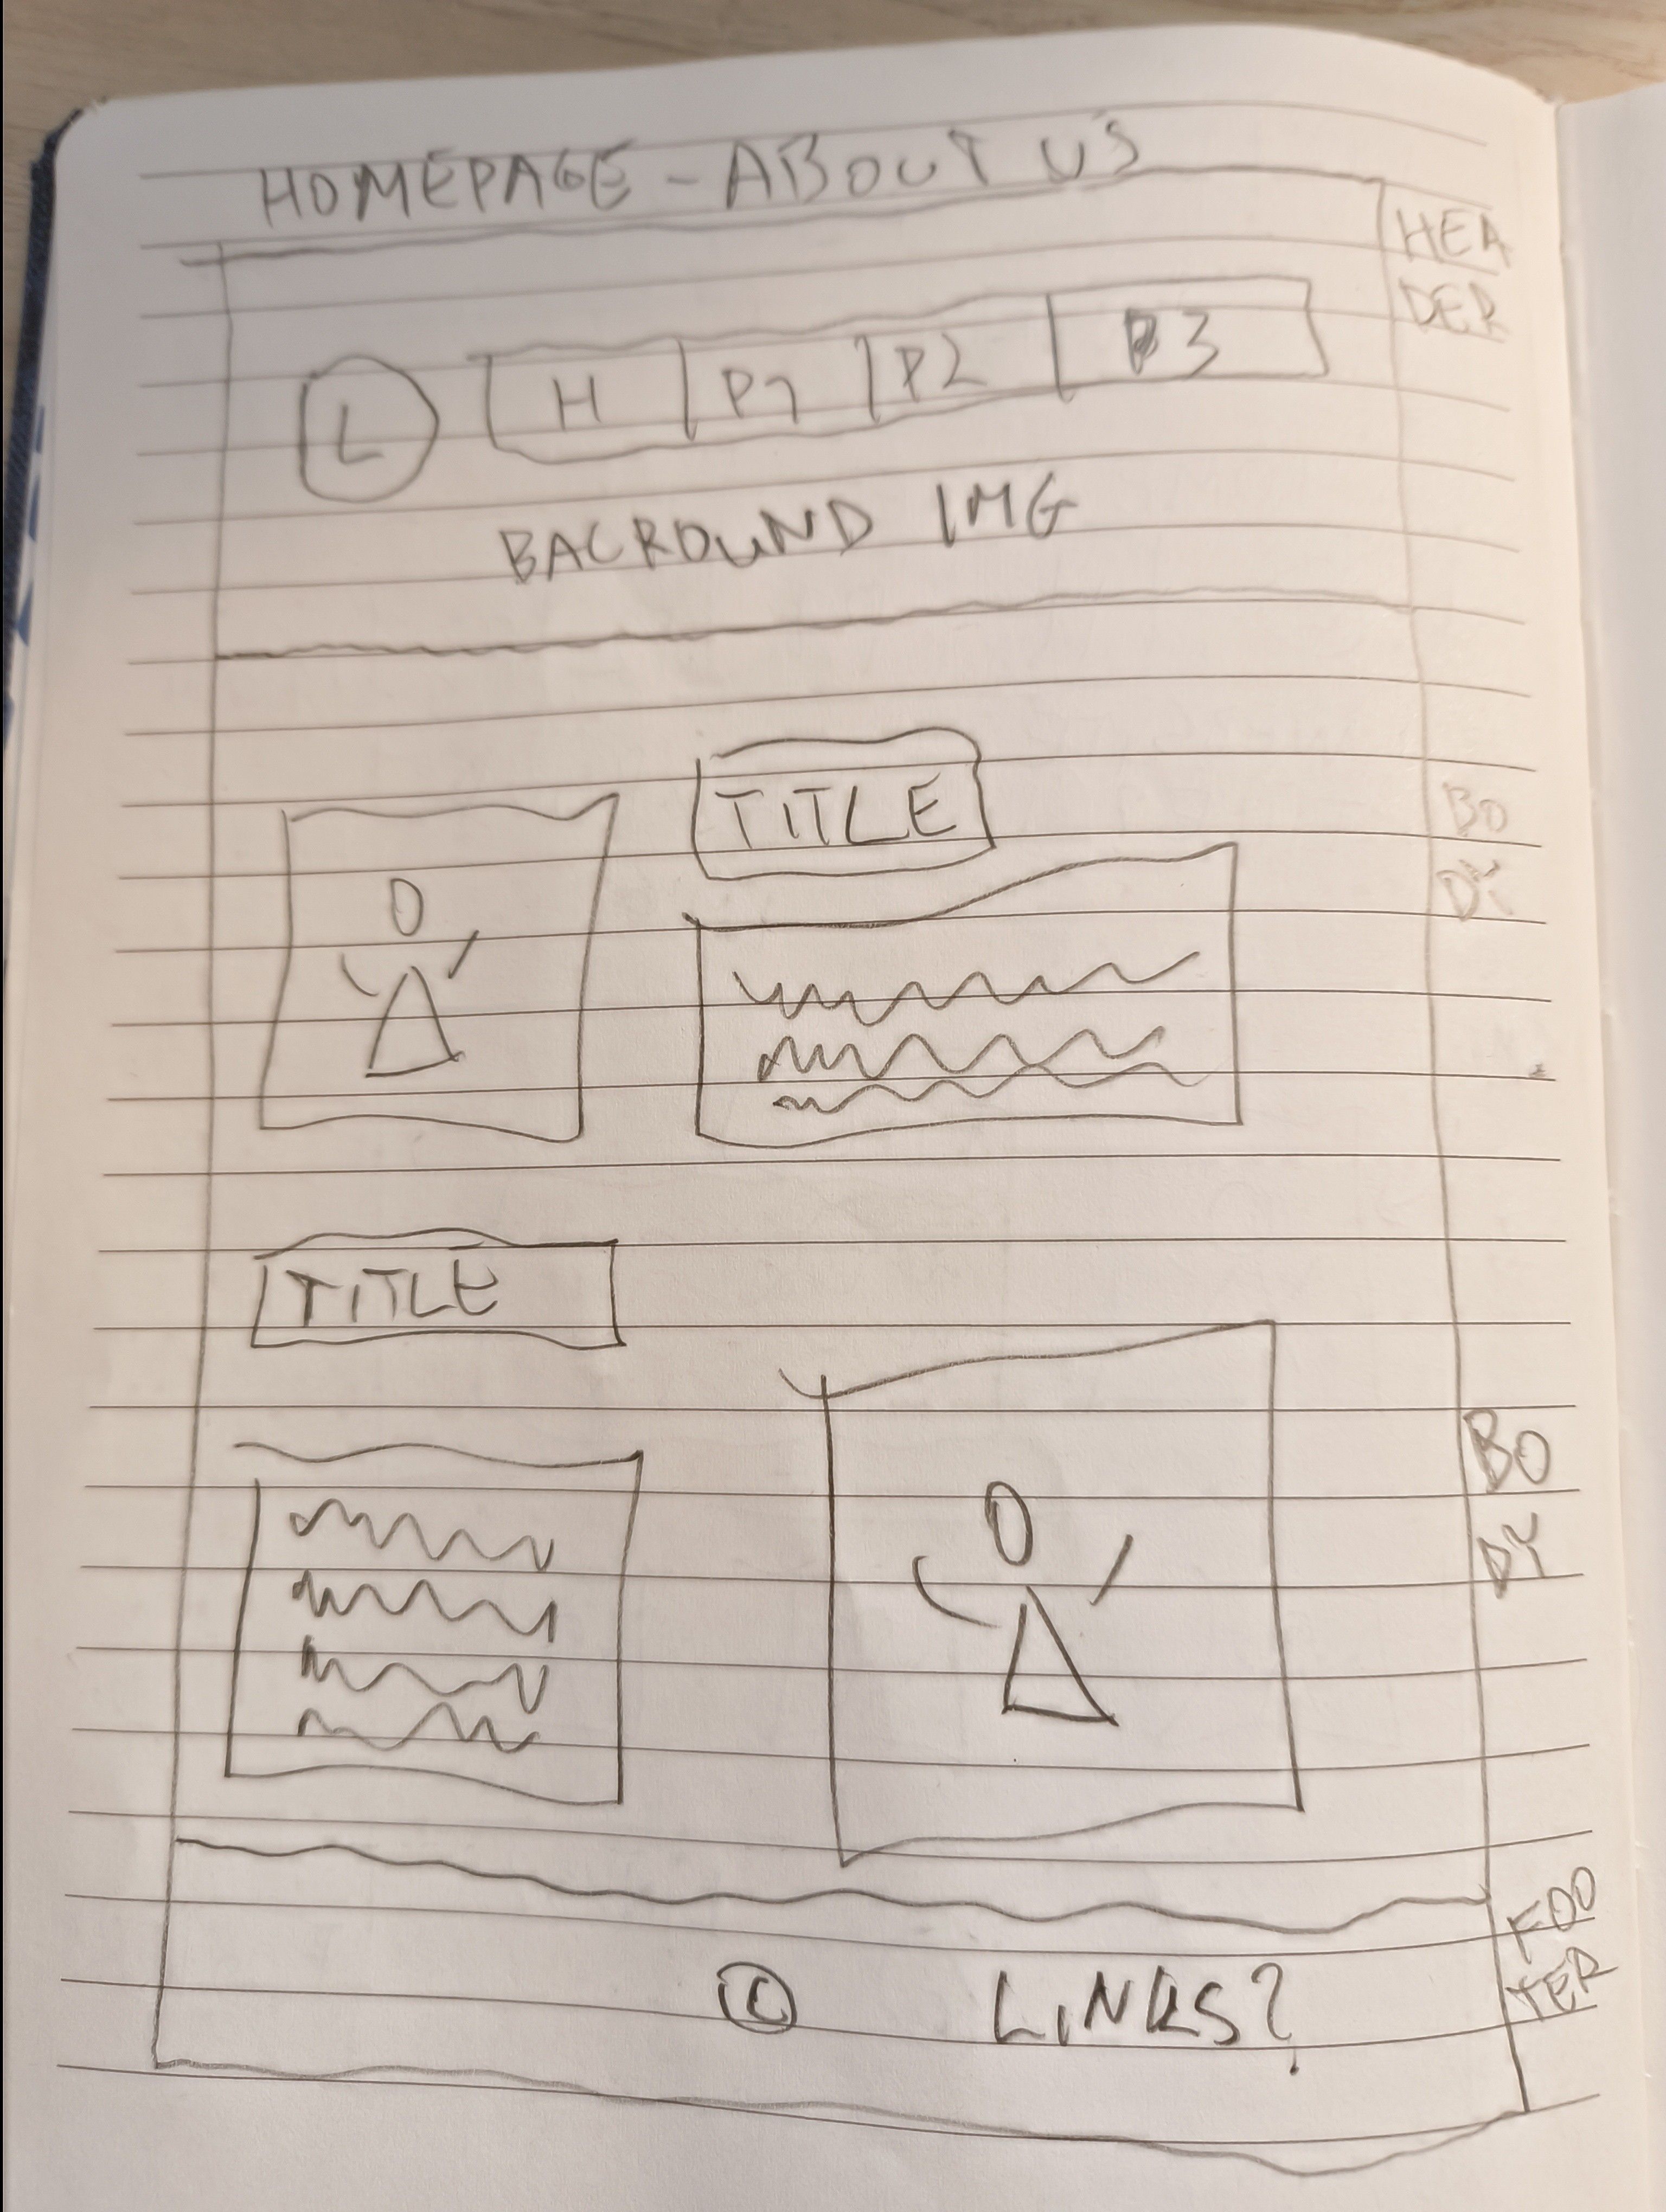 HOMEPAGE - ABOUT US
HEA
DER
L H P1 P2 P3
BACROUND IMG
TITLE
BO
DY
TITLE
BO
DY
© LINKS?
FOO
TER